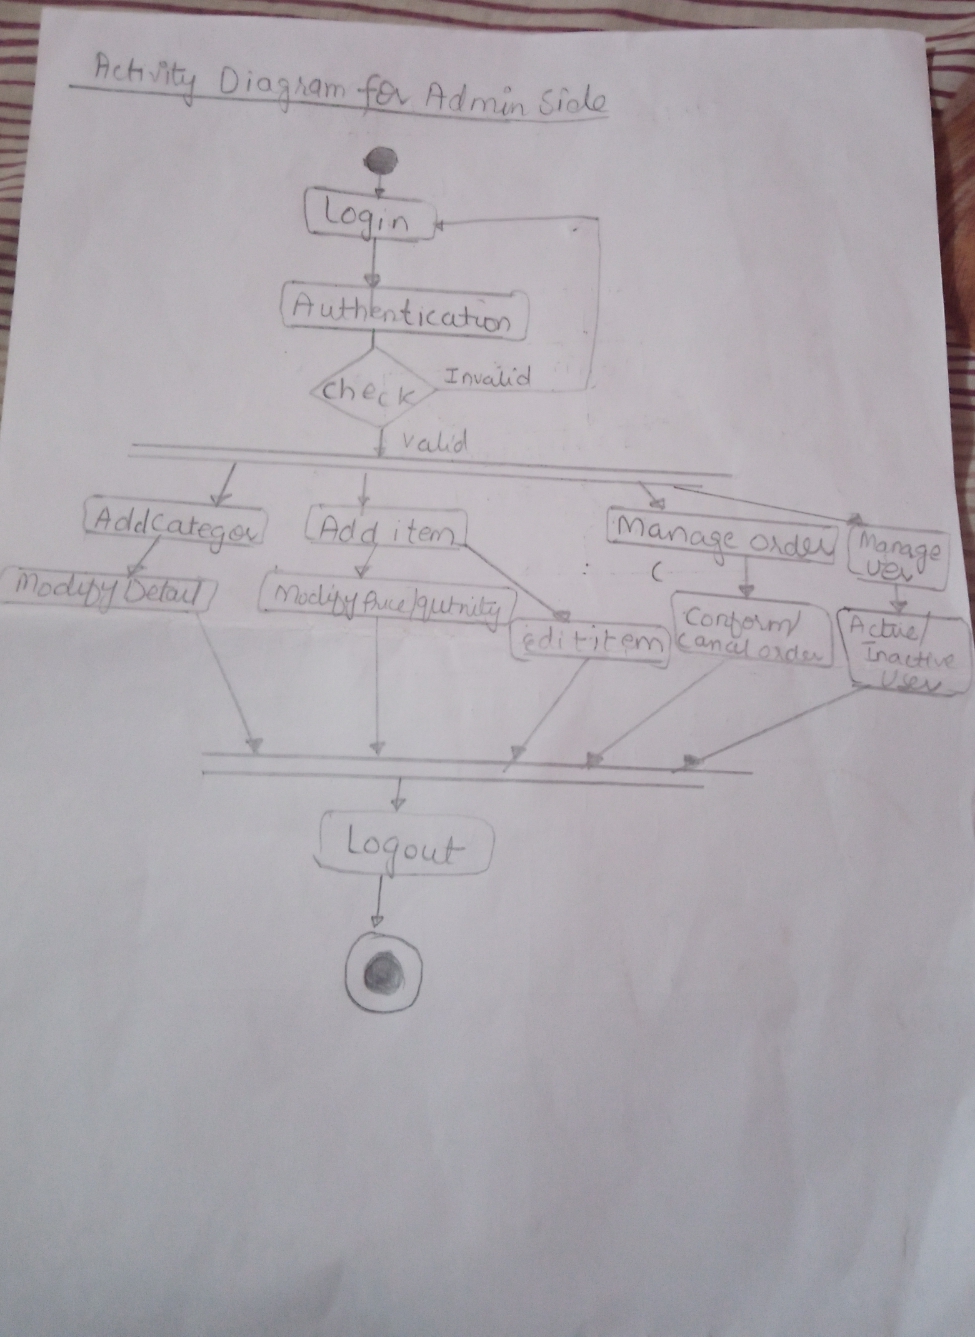 Activity Diagram for Admin Side
Login
Authentication
Invalid
check
valid
Add Categor
Add item
Manage order
Manage
Modify Detail
Modify
edit item
Conform/
Cancal order
Active/
Inactive
User
Logout